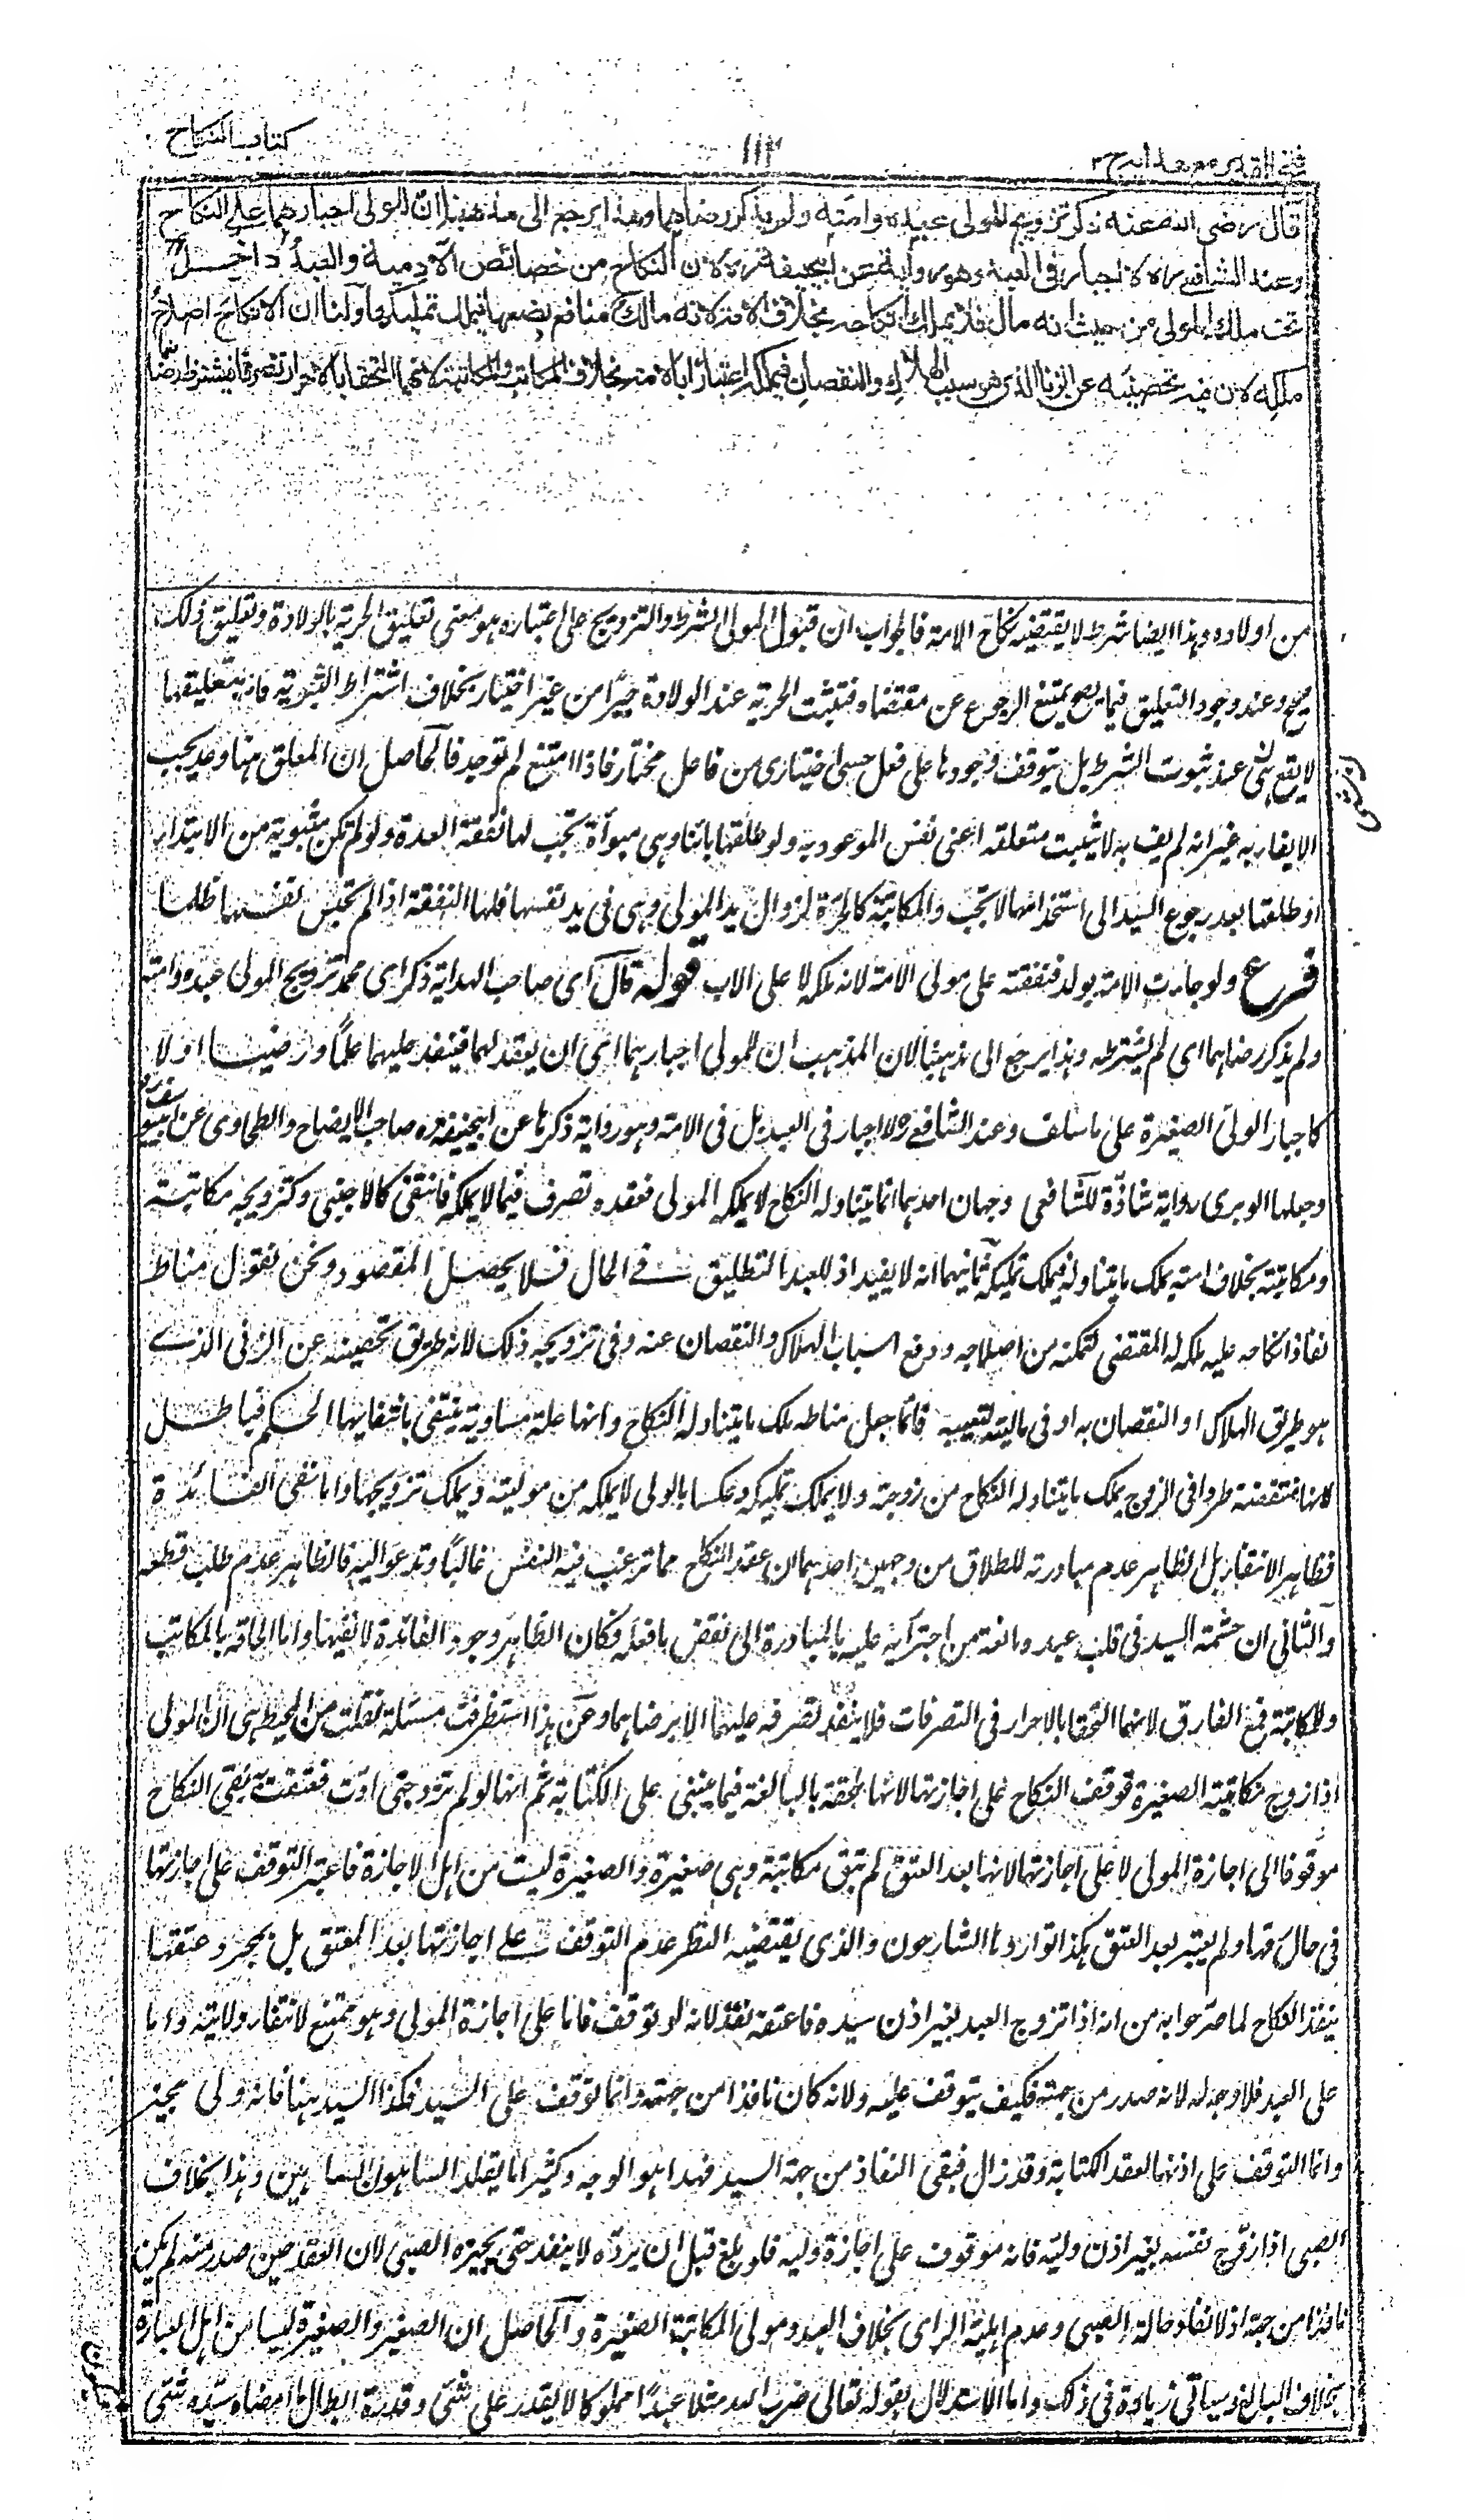 كتاب النكاح
١١٣
فتح القدير مع هدايه ج ٢
قال رضى الله عنه ذكر تزويج المولى عبده وامته ولم يذكر رضاهما وهذا يرجع الى مذهبنا ان للمولى اجبارهما على النكاح
وعند الشافعى ره لا اجبار فى العبد وهو رواية عن ابيحنيفة ره لان النكاح من خصائص الآدمية والعبد داخل
تحت ملك المولى من حيث انه مال فلا يملك انكاحه بخلاف الامة لانه مالك منافع بضعها فيملك تمليكها ولنا ان الانكاح اصلاح
ملكه لان فيه تحصينه عن الزنا الذى هو سبب الهلاك والنقصان فيملكه اعتبارا بالامة بخلاف المكاتب والمكاتبة لانهما التحقا بالاحرار تصرفا فيشترط رضاهما
من اولاده وهذا ايضا شرط لا يقتضيه نكاح الامة فالجواب ان قبول المولى الشرط والتزويج على اعتباره هو معنى تعليق الحرية بالولادة وتعليق ذلك
صحيح وعند وجود التعليق فيما يصح يمتنع الرجوع عن مقتضاه فتثبت الحرية عند الولادة جبرا من غير اختيار بخلاف اشتراط التبوية فان بتعليقها
لا يقع هى عند ثبوت الشرط بل يتوقف وجودها على فعل حسى اختيارى من فاعل مختار فاذا امتنع لم توجد فالحاصل ان المعلق هنا وعد يجب
الايفاء به غير انه لم يف به لا يثبت متعلقه اعنى نفس الموعود به ولو طلقها بائنا وهى مبوأة تجب لها نفقة العدة ولو لم تكن مبوية من الابتداء
او طلقها بعد رجوع السيد الى استخدامها لا تجب والمكاتبة كالحرة لزوال يد المولى وهى فى يد نفسها فلها النفقة اذا لم تحبس نفسها ظلما
فرع ولو جاءت الامة بولد فنفقته على مولى الامة لانه ملكه لا على الاب قوله قال اى صاحب الهداية ذكر اى محمد تزويج المولى عبده وامته
ولم يذكر رضاهما اى لم يشترطه وهذا يرجع الى مذهبنا لان المذهب ان للمولى اجبارهما اى ان يعقد لهما فينفذ عليهما علما ورضيا او لا
كاجبار الولى الصغيرة على ما سلف وعند الشافعى ره لا اجبار فى العبد بل فى الامة وهو رواية ذكرها عن ابيحنيفة ره صاحب الايضاح والطحاوى عن ابى يوسف ره
وجعلها الوبرى رواية شاذة للشافعى وجهان احدهما انما يتناوله النكاح لا يملكه المولى فعقده تصرف فيما لا يملكه فانتفى كالاجنبى وكتزويجه مكاتبه
ومكاتبته بخلاف امته يملك ما يتناوله فيملك تمليكه ثانيهما انه لا يفيد اذ للعبد التطليق فى الحال فلا يحصل المقصود ونحن نقول مناط
نفاذ انكاحه عليه ملكه له المقتضى لتمكنه من اصلاحه ودفع اسباب الهلاك والنقصان عنه وفى تزويجه ذلك لانه طريق تحصينه عن الزنى الذى
هو طريق الهلاك او النقصان به او فى ماليته لتعيبه فانما جعل مناطه ملك ما يتناوله النكاح وانها علة مساوية ينتفى بانتفائها الحكم فباطل
لانها منتقضة طردا فى الزوج يملك ما يتناوله النكاح من زوجته ولا يملك تمليكه وعكسا بالولى لا يملكه من موليته ويملك تزويجها واما نفى الفائدة
فظاهر الانتفاء بل الظاهر عدم مبادرته للطلاق من وجهين احدهما ان عقد النكاح مما ترغب فيه النفس غالبا وتدعو اليه فالظاهر عدم طلب قطعه
والثانى ان حشمة السيد فى قلب عبده مانعة من اجترائه عليه بالمبادرة الى نقض ما فعله فكان الظاهر وجود الفائدة لا نفيها واما الحاقه بالمكاتب
والمكاتبة فمع الفارق لانهما التحقا بالاحرار فى التصرفات فلا ينفذ تصرفه عليهما الا برضاهما وعن هذا استظرفت مسئلة نقلت من المحيط هى ان المولى
اذا زوج مكاتبته الصغيرة توقف النكاح على اجازتها لانها ملحقة بالبالغة فيما يبتنى على الكتابة ثم انها لو لم ترد حتى ادت فعتقت بقى النكاح
موقوفا الى اجازة المولى لا على اجازتها لانها بعد العتق لم تبق مكاتبة وهى صغيرة والصغيرة ليست من اهل الاجازة فاعتبر التوقف على اجازتها
فى حال رقها ولم يعتبر بعد العتق هكذا تواردها الشارحون والذى يقتضيه النظر عدم التوقف على اجازتها بعد العتق بل بمجرد عتقها
ينفذ النكاح لما صرحوا به من انه اذا تزوج العبد بغير اذن سيده فاعتقه نفذ لانه لو توقف فاما على اجازة المولى وهو ممتنع لانتفاء ولايته واما
على العبد فلا وجه له لانه صدر من جهته فكيف يتوقف عليه ولانه كان نافذا من جهته وانما توقف على السيد فكذا السيد هنا فانه ولى مجبر
وانما التوقف على اذنها لعقد الكتابة وقد زال فبقى النفاذ من جهة السيد فهذا هو الوجه وكثيرا ما يقلد الساهون الساهين وهذا بخلاف
الصبى اذا زوج نفسه بغير اذن وليه فانه موقوف على اجازة وليه فلو بلغ قبل ان يرده لا ينفذ حتى يجيزه الصبى لان العقد حين صدر منه لم يكن
نافذا من جهته اذ لا نفاذ حالة الصبى وعدم اهلية الراى بخلاف العبد ومولى المكاتبة الصغيرة والحاصل ان الصغير والصغيرة ليسا من اهل العبارة
بخلاف البالغ وسياتى زيادة فى ذلك واما الاستدلال بقوله تعالى ضرب الله مثلا عبدا مملوكا لا يقدر على شئ وقدرة ابطال ما امضاه سيده شئ